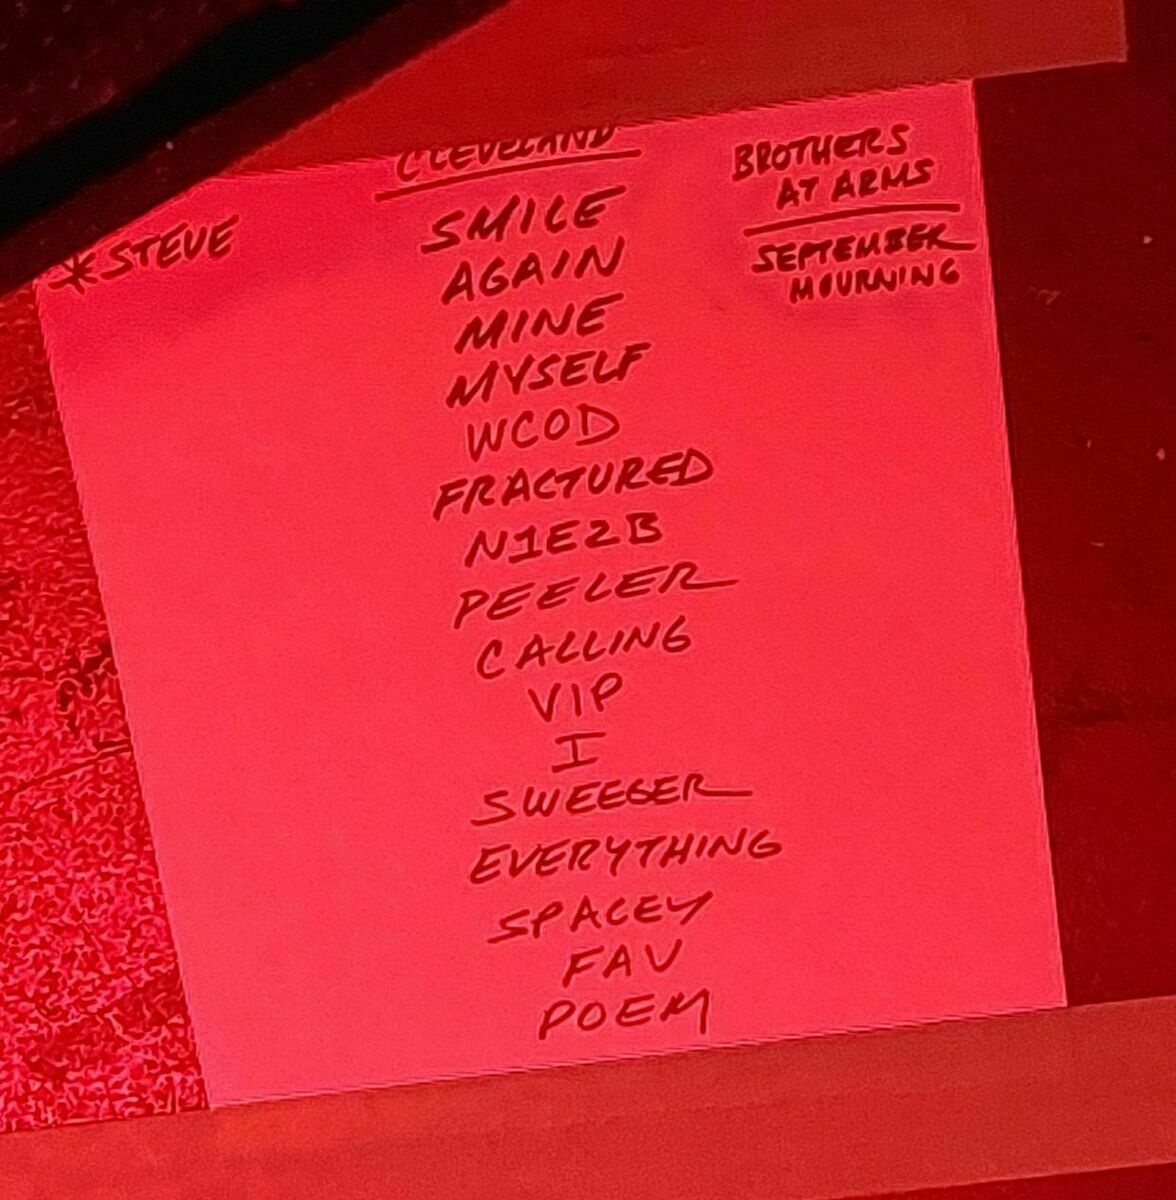 CLEVELAND
*STEVE
SMILE
AGAIN
MINE
MYSELF
WCOD
FRACTURED
N1E2B
PEELER
CALLING
VIP
I
SWEEGER
EVERYTHING
SPACEY
FAV
POEM
BROTHERS
AT ARMS
SEPTEMBER
MOURNING